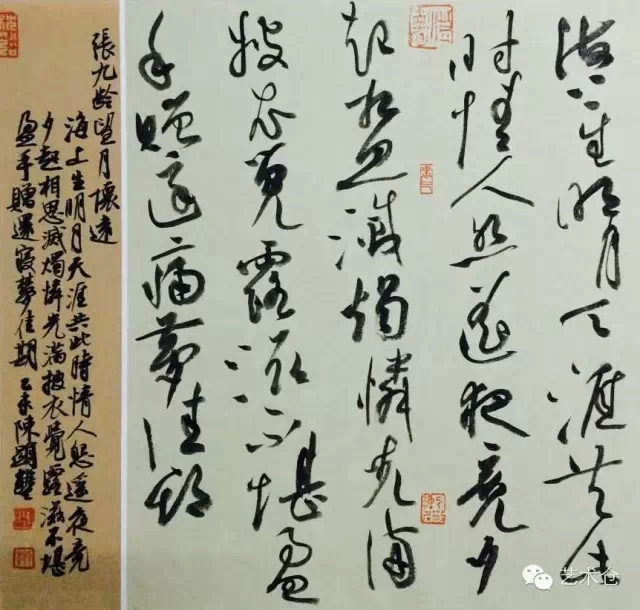 海上生明月天涯共此
時情人怨遙夜竟夕
起相思滅燭憐光滿
披衣覺露滋不堪盈
手贈還寢夢佳期
張九齡望月懷遠
海上生明月天涯共此時情人怨遙夜竟
夕起相思滅燭憐光滿披衣覺露滋不堪
盈手贈還寢夢佳期 乙未陳
艺术仓